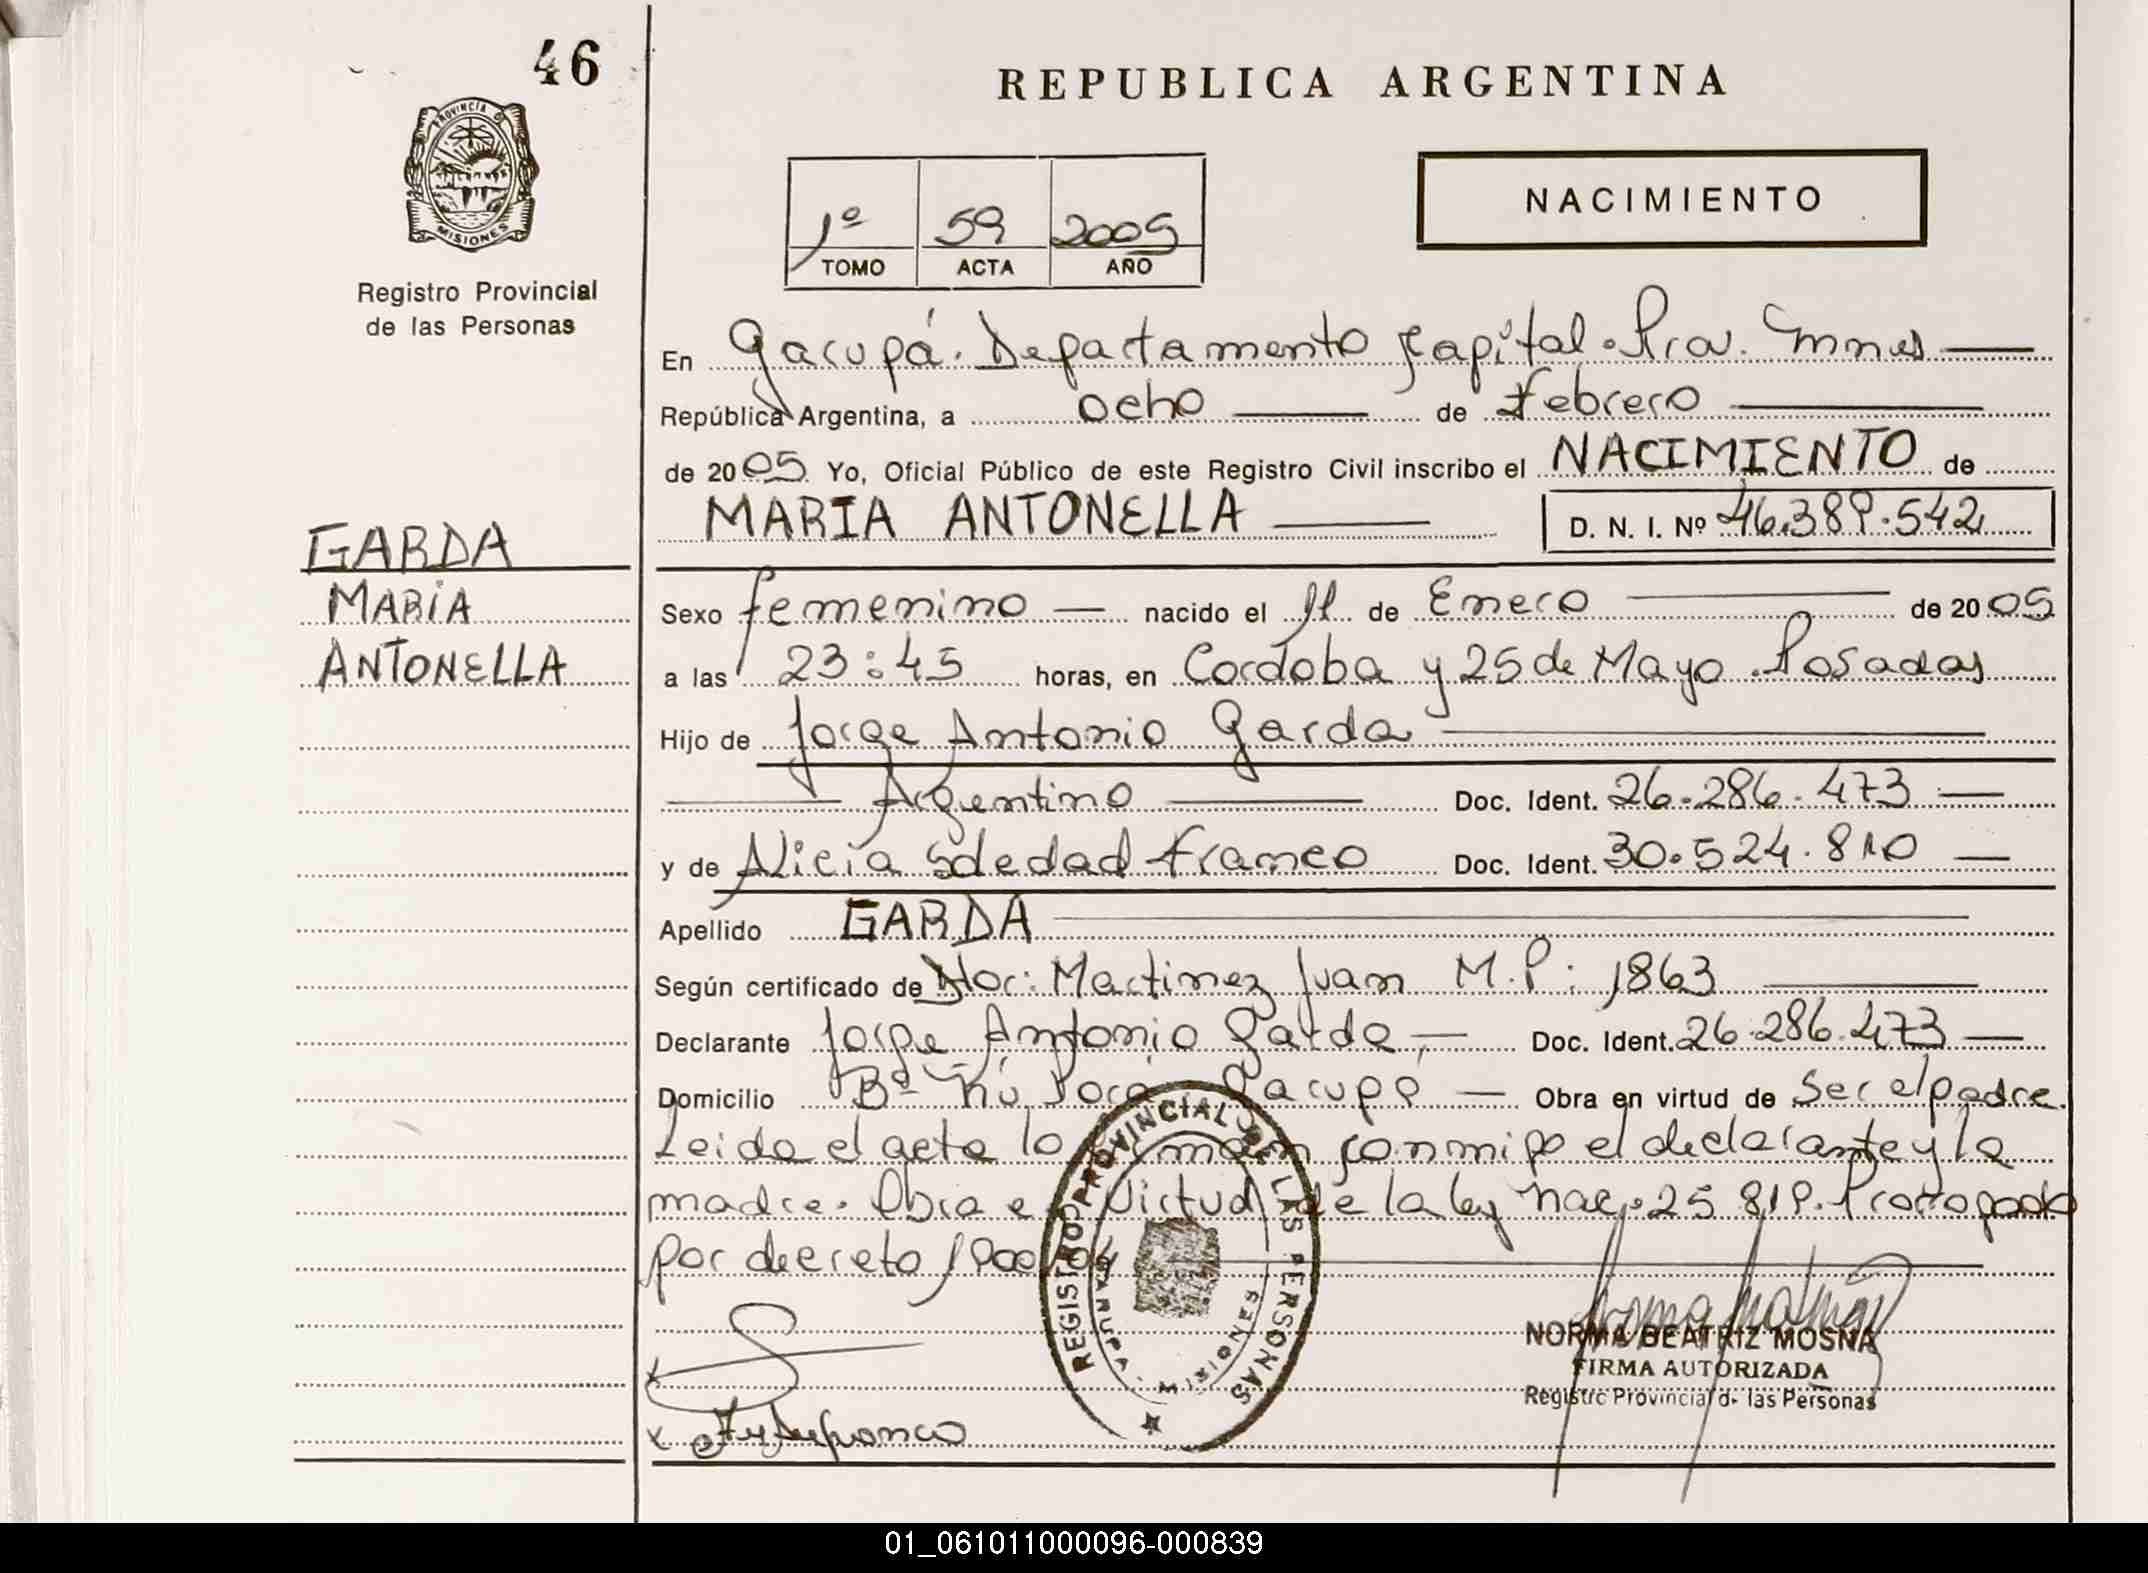 46
PROVINCIA DE
MISIONES
Registro Provincial
de las Personas
GARDA
MARIA
ANTONELLA
REPUBLICA ARGENTINA
1º 59 2005
TOMO ACTA AÑO
NACIMIENTO
En Garupá. Departamento Capital. Prov. Mnes
República Argentina, a ocho de Febrero
de 2005 Yo, Oficial Público de este Registro Civil inscribo el NACIMIENTO de
MARIA ANTONELLA D. N. I. Nº 46.389.542
Sexo femenino nacido el 11 de Enero de 2005
a las 23:45 horas, en Cordoba y 25 de Mayo. Posadas
Hijo de Jorge Antonio Garda
Argentino Doc. Ident. 26.286.473
y de Alicia Soledad Franco Doc. Ident. 30.524.810
Apellido GARDA
Según certificado de Martinez Juan M.P: 1863
Declarante Jorge Antonio Garda Doc. Ident. 26.286.473
Domicilio Bº Ñú Porá Garupá Obra en virtud de Ser el padre.
Leida el acta lo firman conmigo el declarante y la
madre. Obra en Virtud de la ley nac. 25.819. Prorrogado
por decreto
REGISTRO PROVINCIAL DE LAS PERSONAS
GARUPA - MISIONES
NORMA BEATRIZ MOSNA
FIRMA AUTORIZADA
Registro Provincial de las Personas
01_061011000096-000839